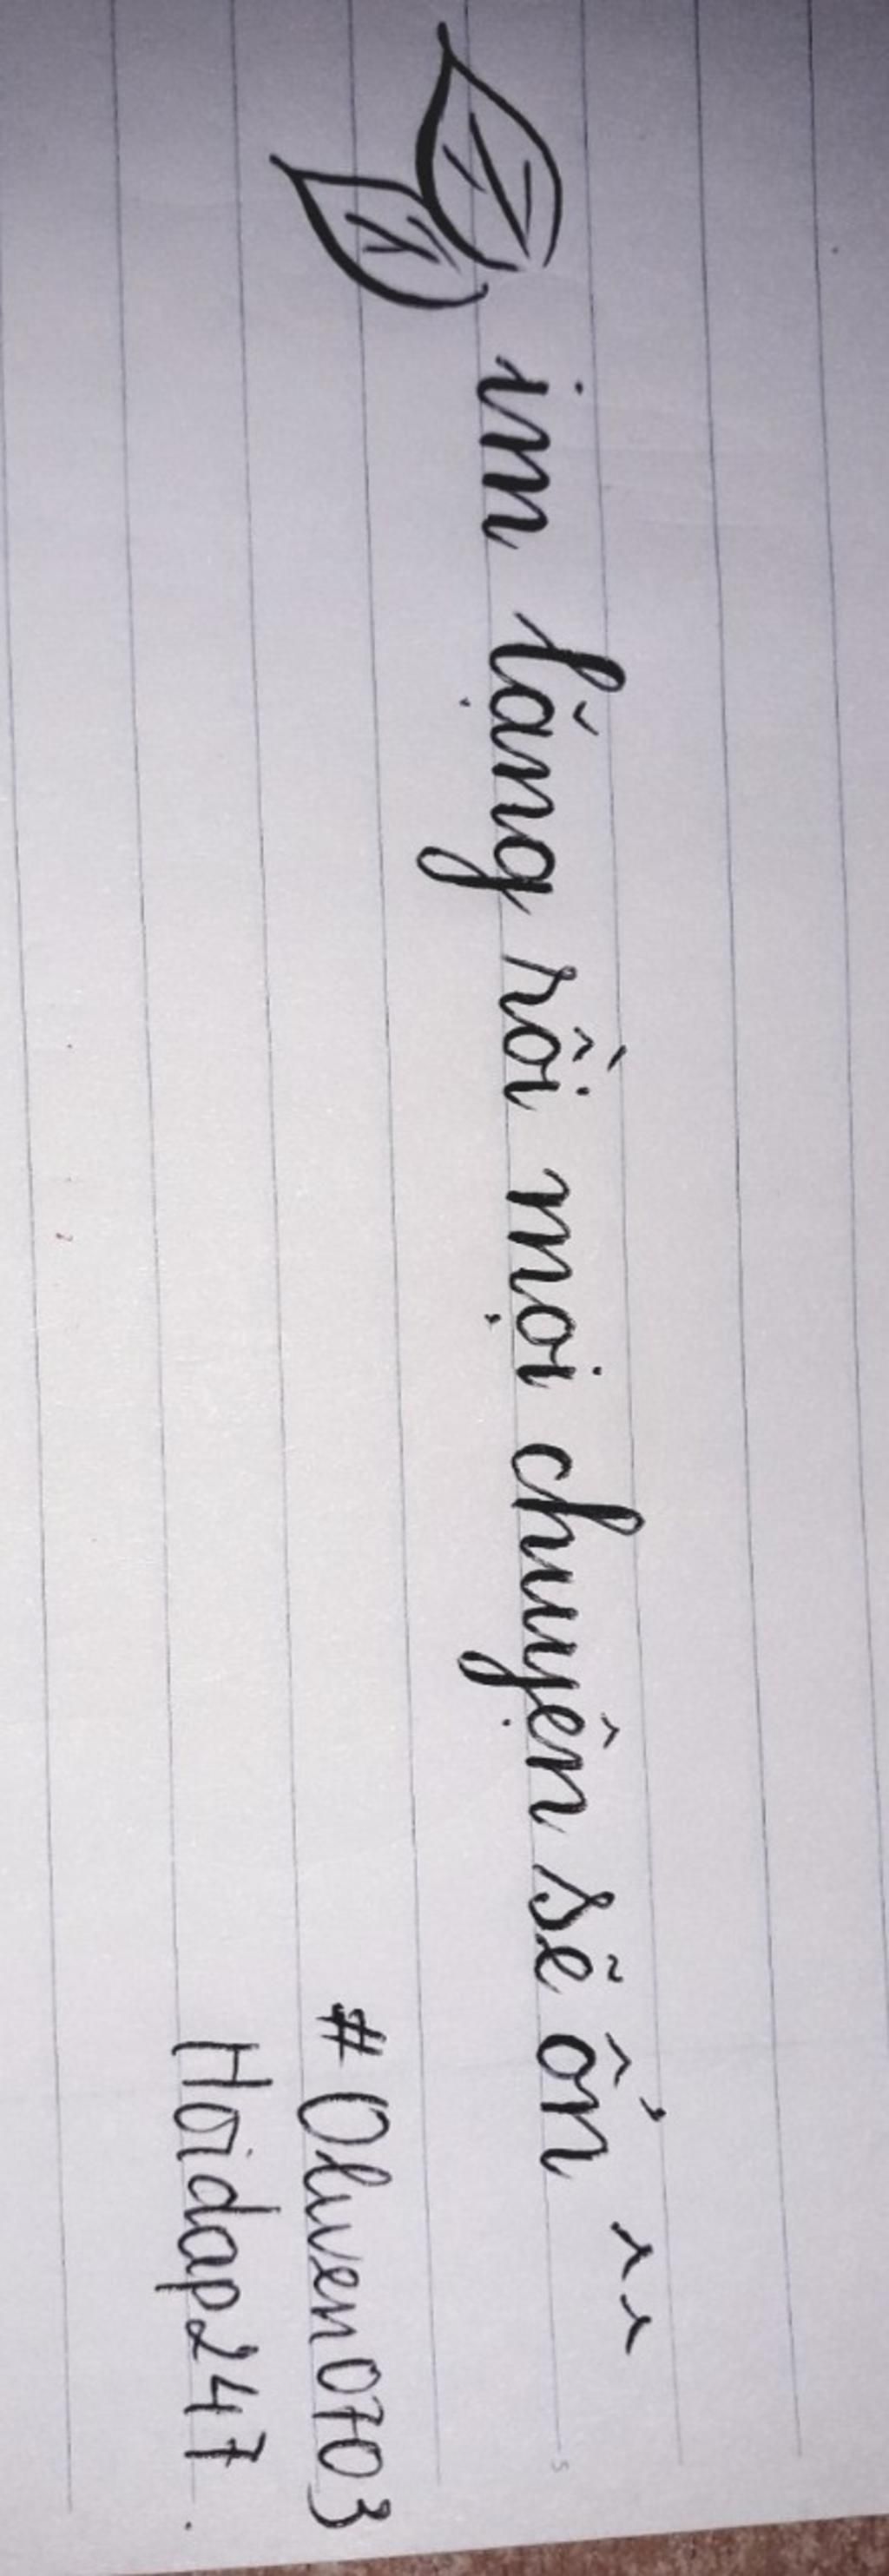 im lặng rồi mọi chuyện sẽ ổn ^^
# Oliven0703
Hoidap247.